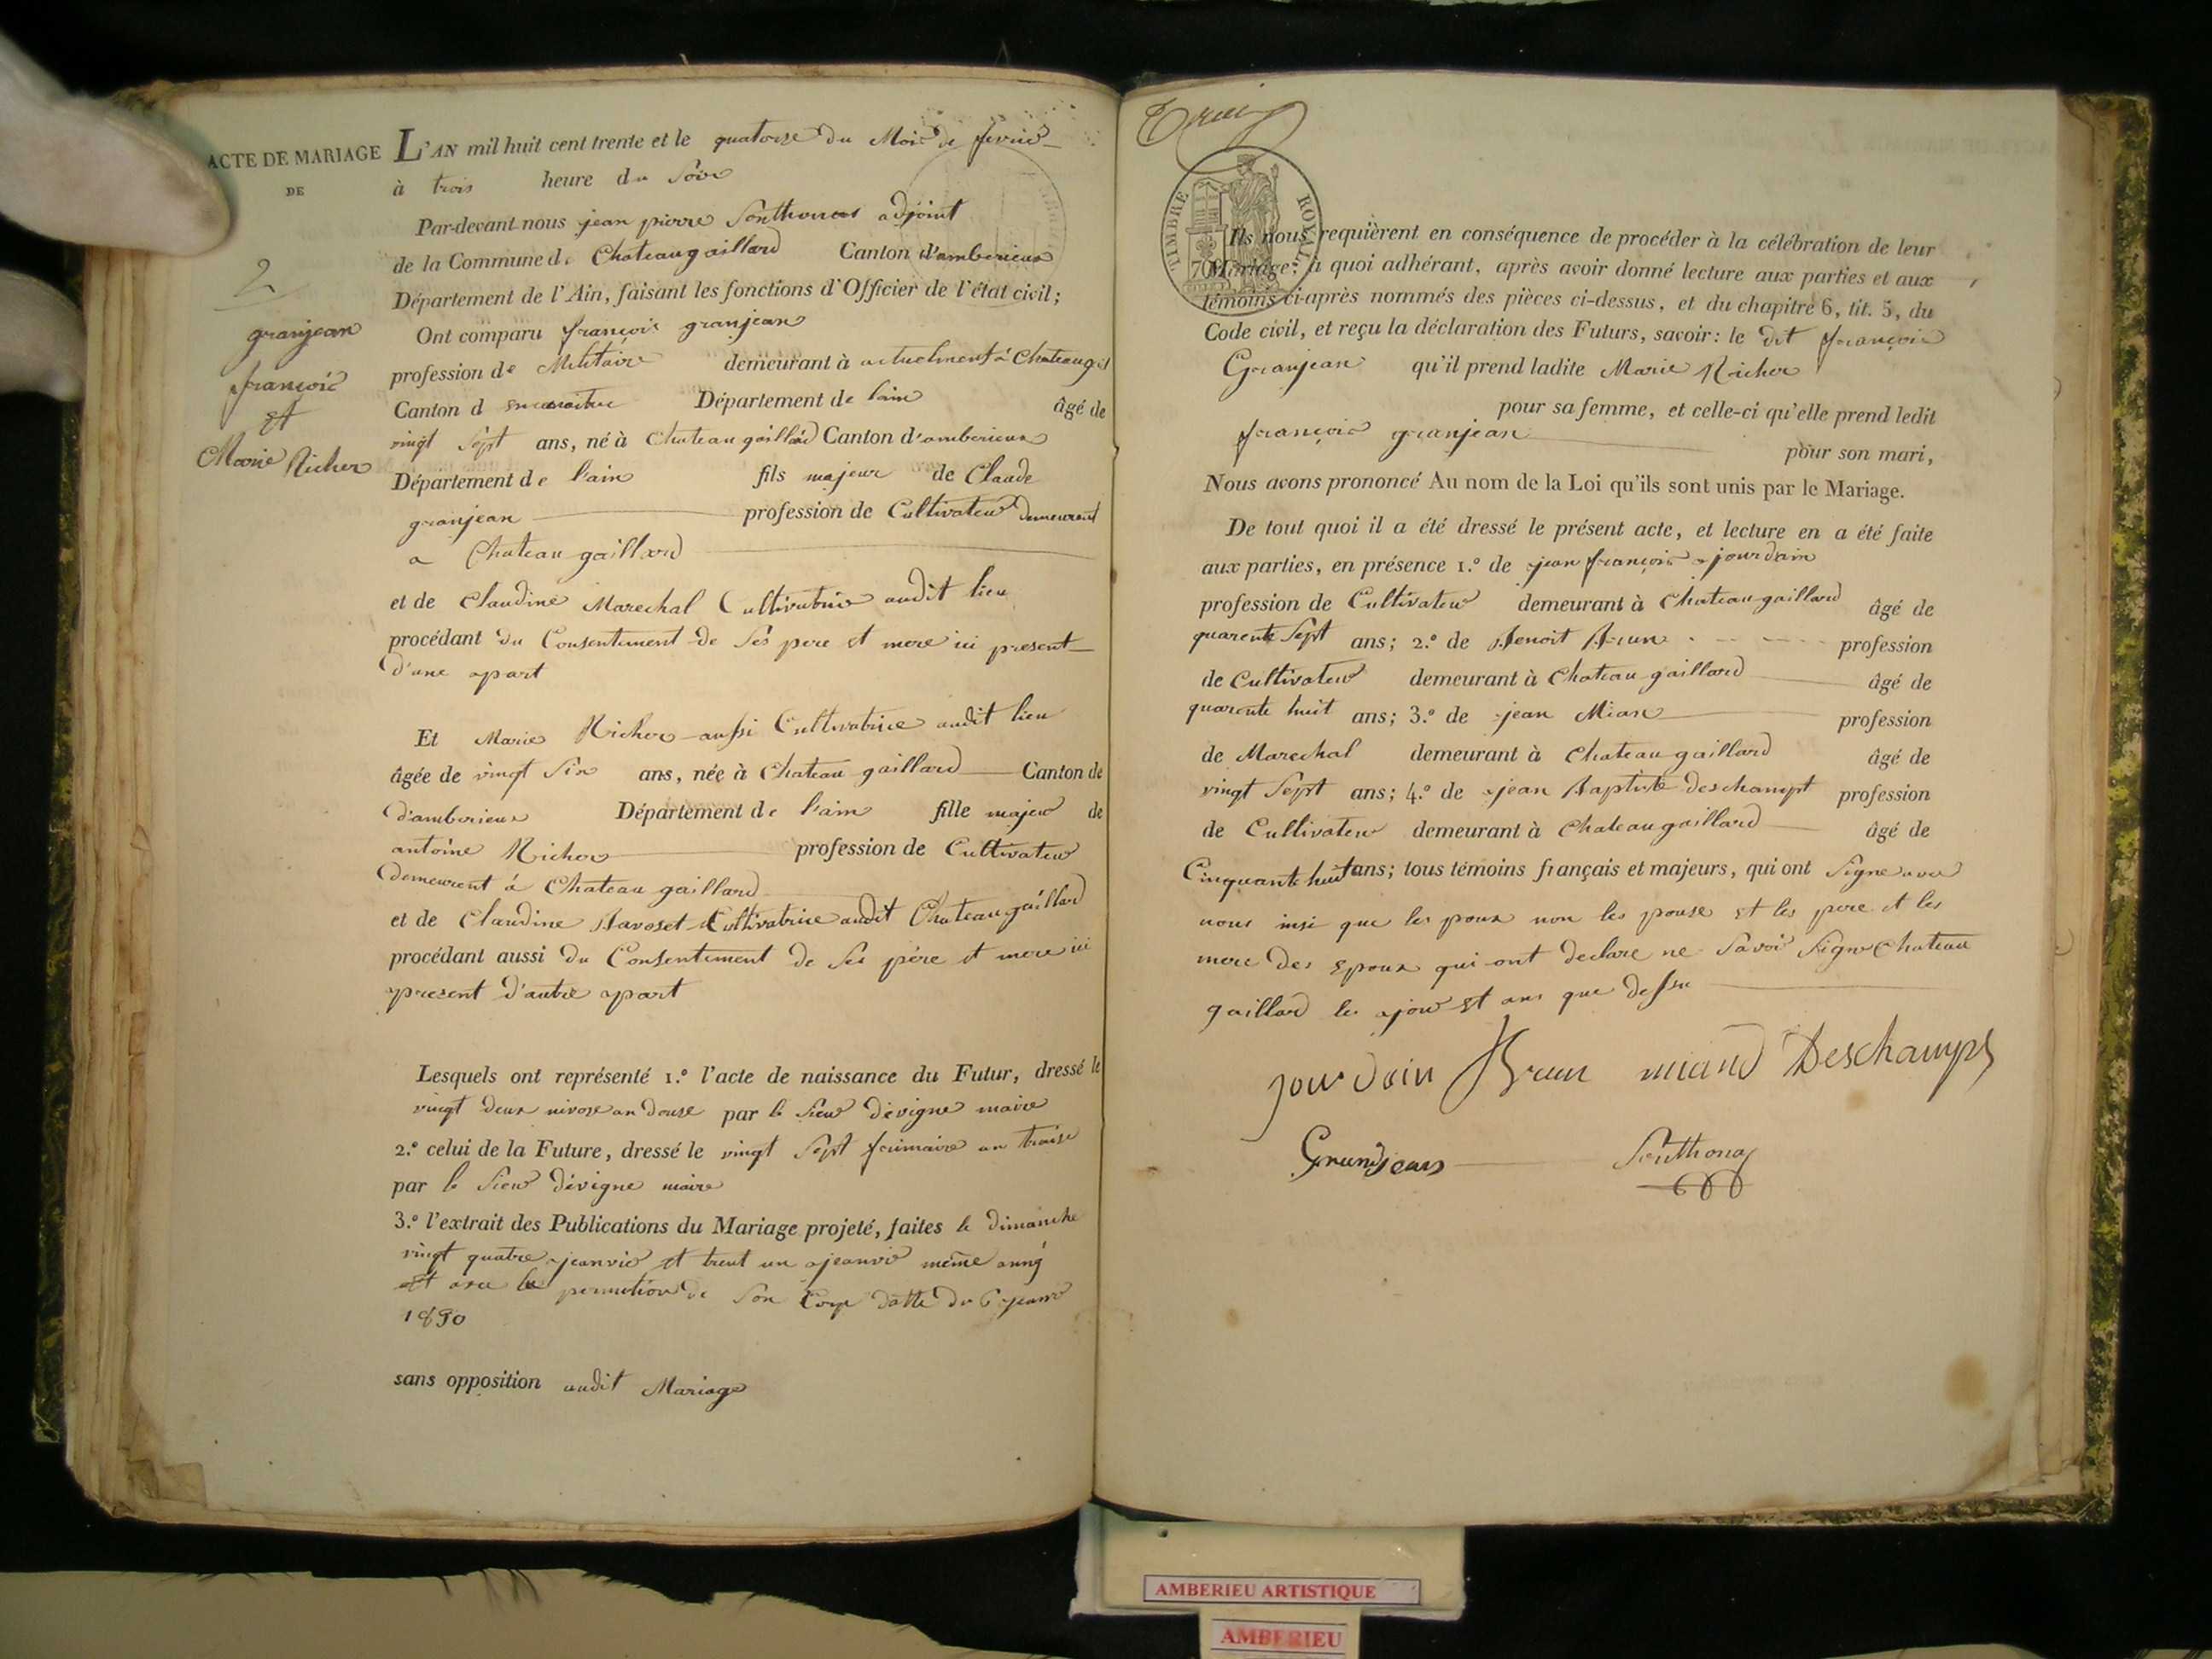 ACTE DE MARIAGE
DE
2
granjean
françois
et
Marie Richer
L'AN mil huit cent trente et le quatorse du Mois de fevrié
à trois heure du Soir
Par-devant nous jean pierre Sonthonas adjoint
de la Commune de Chateaugaillard Canton d'amberieux
Département de l'Ain, faisant les fonctions d'Officier de l'état civil;
Ont comparu françois granjean
profession de Militaire demeurant à actuelment à Chateaugail
Canton d Département de l'ain âgé de
vingt Sept ans, né à Chateau gaillard Canton d'amberieux
Département de l'ain fils majeur de Claude
granjean profession de Cultivateur demeurent
a Chateau gaillard
et de Claudine Marechal Cultivatrice audit lieu
procédant du Consentement de Ses pere et mere ici present
d'une part
Et Marie Richer aussi Cultivatrice audit lieu
âgée de vingt Six ans, née à Chateau gaillard Canton de
d'amberieux Département de l'ain fille majeur de
antoine Richer profession de Cultivateur
demeurent à Chateau gaillard
et de Claudine Ravoset Cultivatrice audit Chateaugaillard
procédant aussi du Consentement de Ses père et mere ici
present d'autre part
Lesquels ont représenté 1.º l'acte de naissance du Futur, dressé le
vingt deux nivose an douse par le Sieur devigne maire
2.º celui de la Future, dressé le vingt Sept frimaire an traise
par le Sieur devigne maire
3.º l'extrait des Publications du Mariage projeté, faites le dimanche
vingt quatre jeanvié et trent un jeanvié même anné
et avec la de Son Corp datte du 6 jeanvié
1830
sans opposition audit Mariage
TIMBRE ROYAL
70
Ils nous requièrent en conséquence de procéder à la célébration de leur
Mariage: à quoi adhérant, après avoir donné lecture aux parties et aux
témoins ci-après nommés des pièces ci-dessus, et du chapitre 6, tit. 5, du
Code civil, et reçu la déclaration des Futurs, savoir: le dit françois
Granjean qu'il prend ladite Marie Richer
pour sa femme, et celle-ci qu'elle prend ledit
françois granjean pour son mari,
Nous avons prononcé Au nom de la Loi qu'ils sont unis par le Mariage.
De tout quoi il a été dressé le présent acte, et lecture en a été faite
aux parties, en présence 1.º de jean françois jourdain
profession de Cultivateur demeurant à Chateau gaillard âgé de
quarente Sept ans; 2.º de Benoit Brun profession
de Cultivateur demeurant à Chateau gaillard âgé de
quarente huit ans; 3.º de jean Mian profession
de Marechal demeurant à Chateau gaillard âgé de
vingt Sept ans; 4.º de jean Baptiste deschampt profession
de Cultivateur demeurant à Chateaugaillard âgé de
Cinquante huit ans; tous témoins français et majeurs, qui ont Signe avec
nous insi que les poux non les pouse et les pere et les
mere des epoux qui ont declare ne Savoir Signe Chateau
gaillard les jour et ans que dessu
jourdain Brun miand Deschamps
Grandjean Sonthonas
AMBERIEU ARTISTIQUE
AMBERIEU